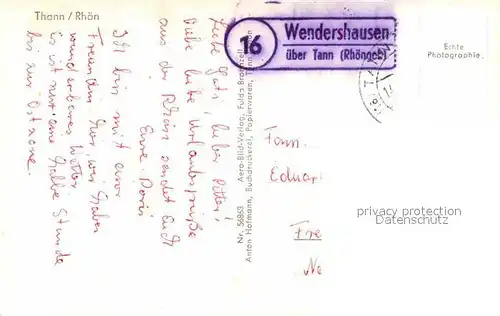 Thann / Rhön
Liebe Gabi, lieber Peter!
Viele liebe Urlaubsgrüße
aus der Rhön sendet Euch
Eure Doris
Ich bin mit einer
Freundin hier, wir haben
wunderbares Wetter.
Es ist nur eine halbe Stunde
bis zur Ostzone.
Nr. 56863 Aero-Bild-Verlag, Fulda
Anton Hofmann, Buchdruckerei, Papierwaren,
16
Wendershausen
über Tann (Rhöngeb)
Echte
Photographie
Fam.
Eduar
Fre
Ne
privacy protection
Datenschutz